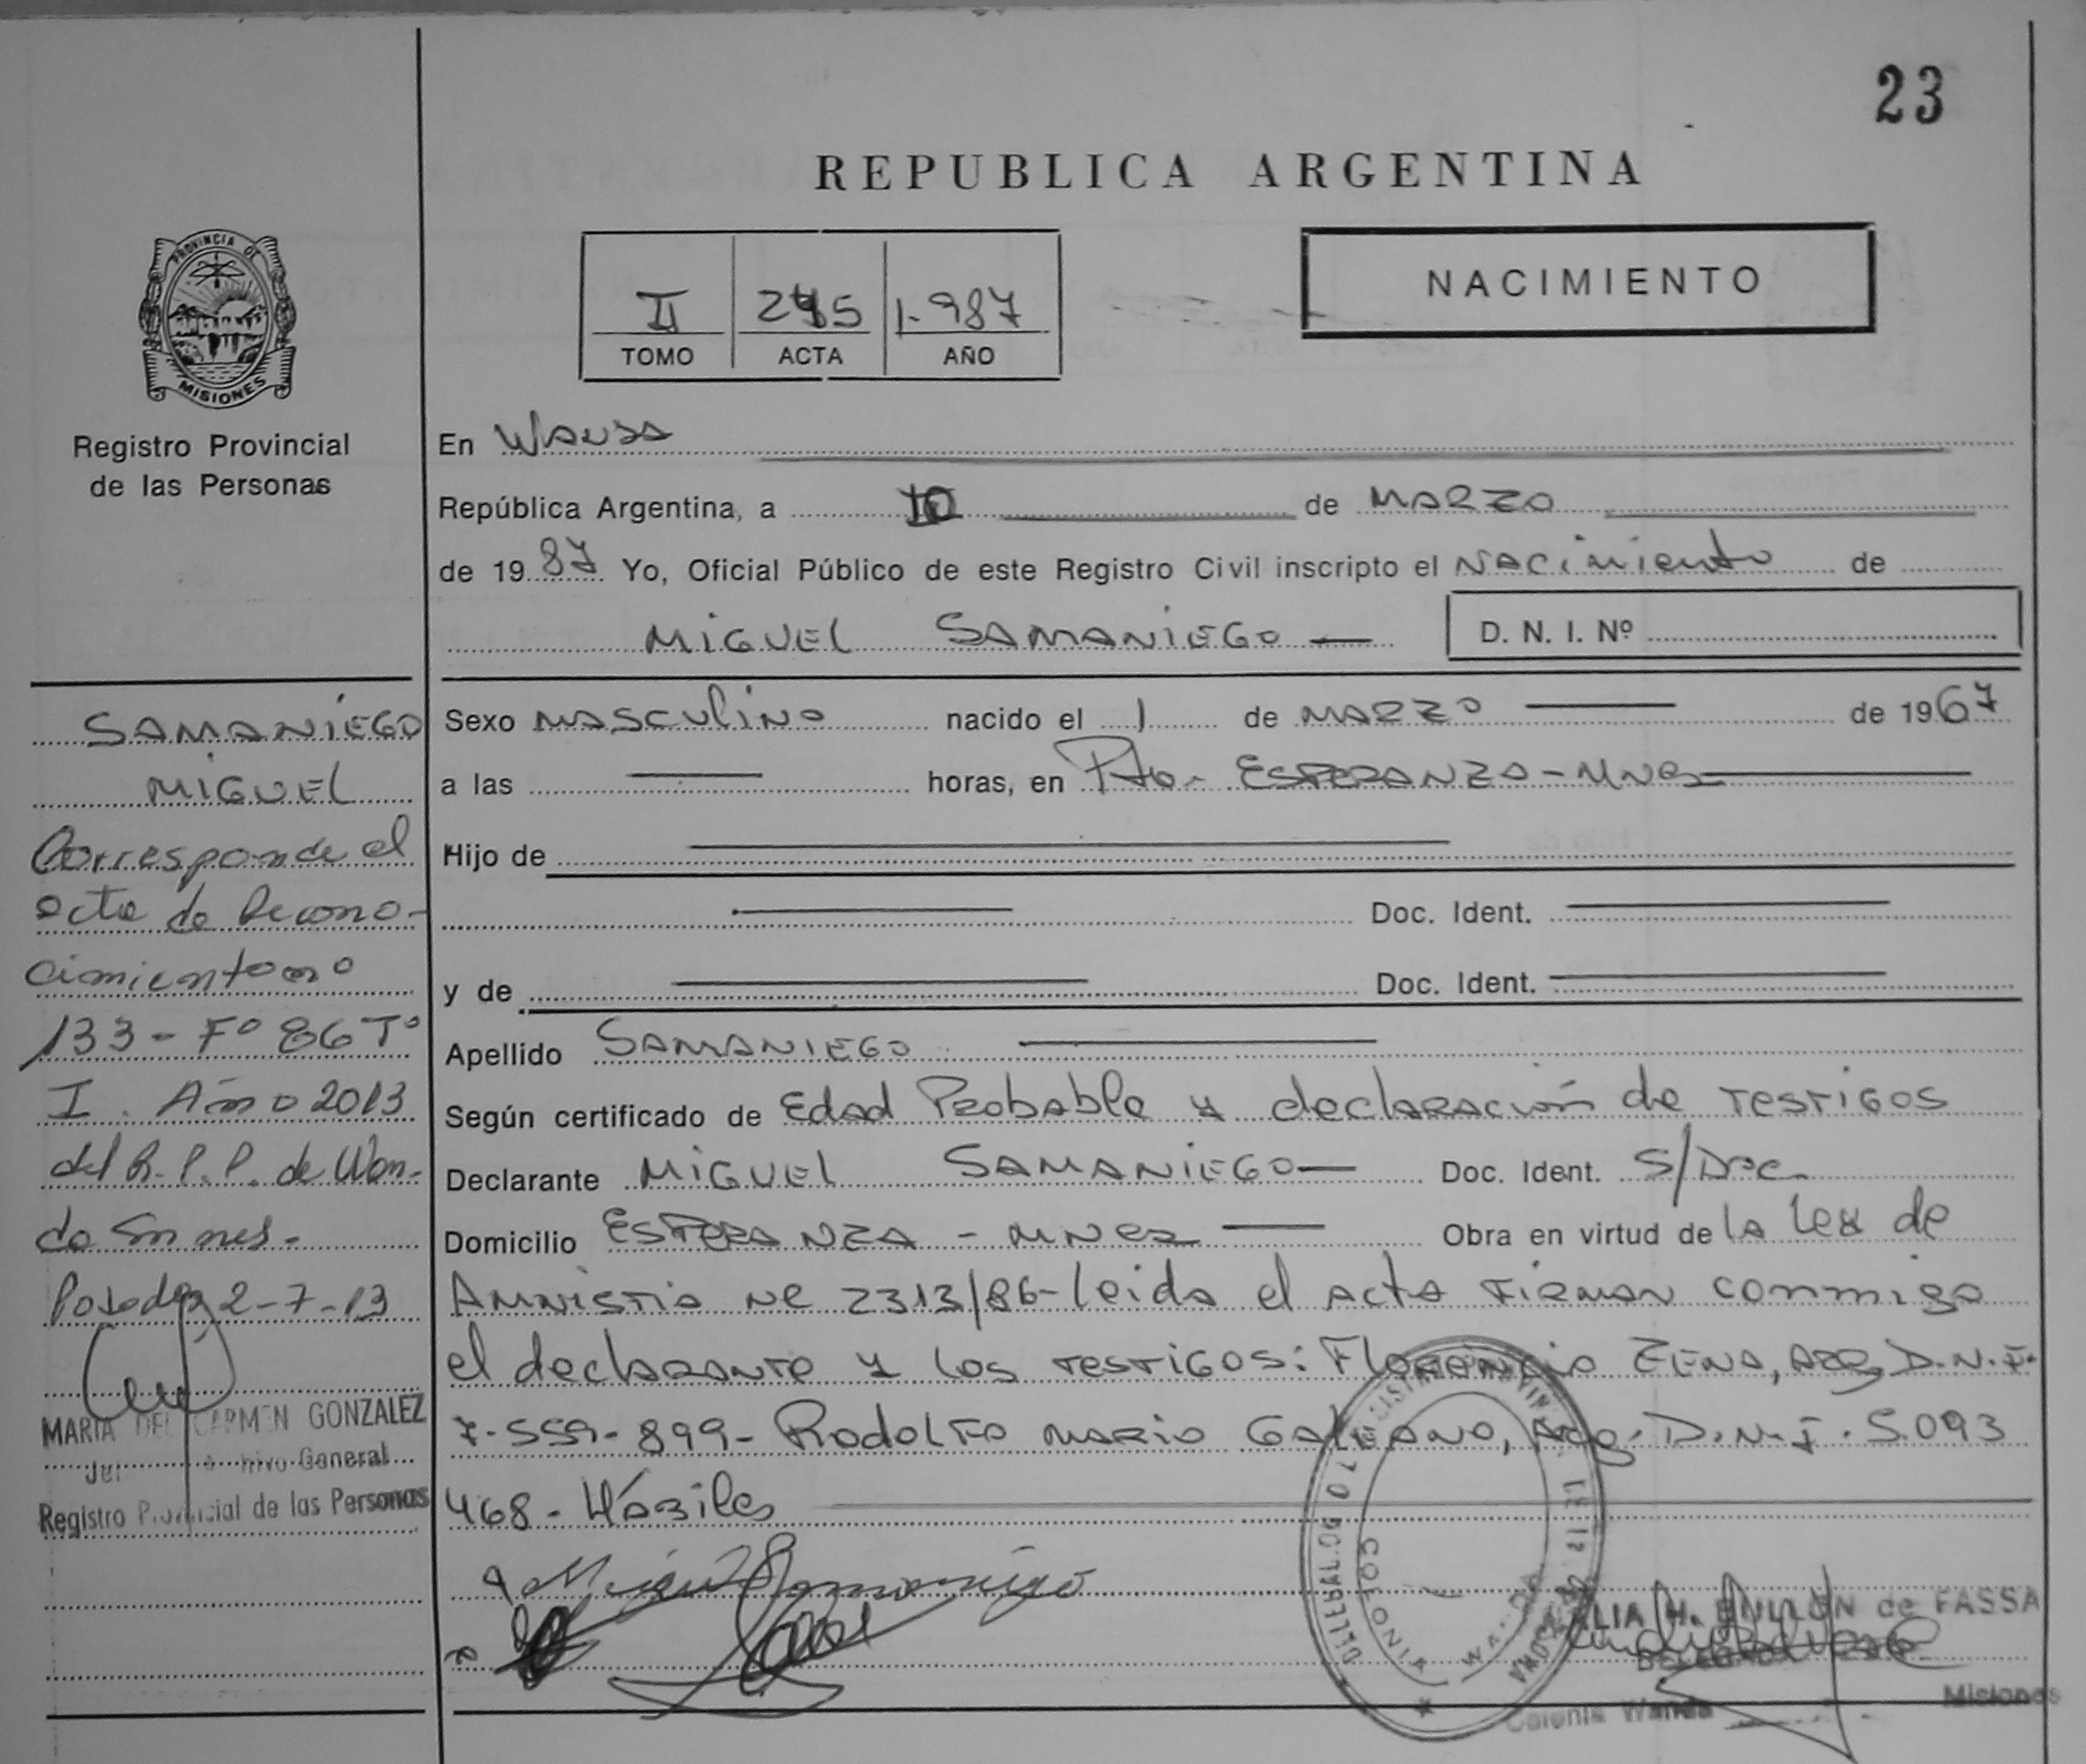 23
REPUBLICA ARGENTINA
NACIMIENTO
II 245 1.987
TOMO ACTA AÑO
PROVINCIA DE
MISIONES
Registro Provincial
de las Personas
En Wanda
República Argentina, a 10 de MARZO
de 1987 Yo, Oficial Público de este Registro Civil inscripto el Nacimiento de
MIGUEL SAMANIEGO D. N. I. Nº
Sexo MASCULINO nacido el 1 de MARZO de 1967
a las horas, en Pto- ESPERANZA-Mnes
Hijo de
Doc. Ident.
y de Doc. Ident.
Apellido SAMANIEGO
Según certificado de Edad Probable y declaración de testigos
Declarante MIGUEL SAMANIEGO Doc. Ident. S/Doc.
Domicilio ESPERANZA - MNES Obra en virtud de la Ley de
Amnistia Nº 2313/86-leida el acta firman conmigo
el declarante y los testigos: Florencio ZENA, ARG, D.N.I.
7-559-899- Rodolfo Mario GALEANO, Arg. D.N.I. 5.093
468- Hábiles
Miguel Samaniego
SAMANIEGO
MIGUEL
Corresponde el
acta de Recono-
cimiento nº
133- Fº 86 Tº
I. Año 2013
del R.P.P. de Wan-
da Mnes.
Posadas 2-7-13
MARIA DEL CARMEN GONZALEZ
Archivo General
Registro Provincial de las Personas
de FASSA
Colonia Wanda Misiones